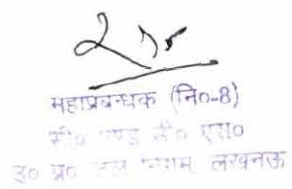 महाप्रबन्धक (नि०-8)
सी० एण्ड डी० एस०
उ० प्र० जल निगम लखनऊ